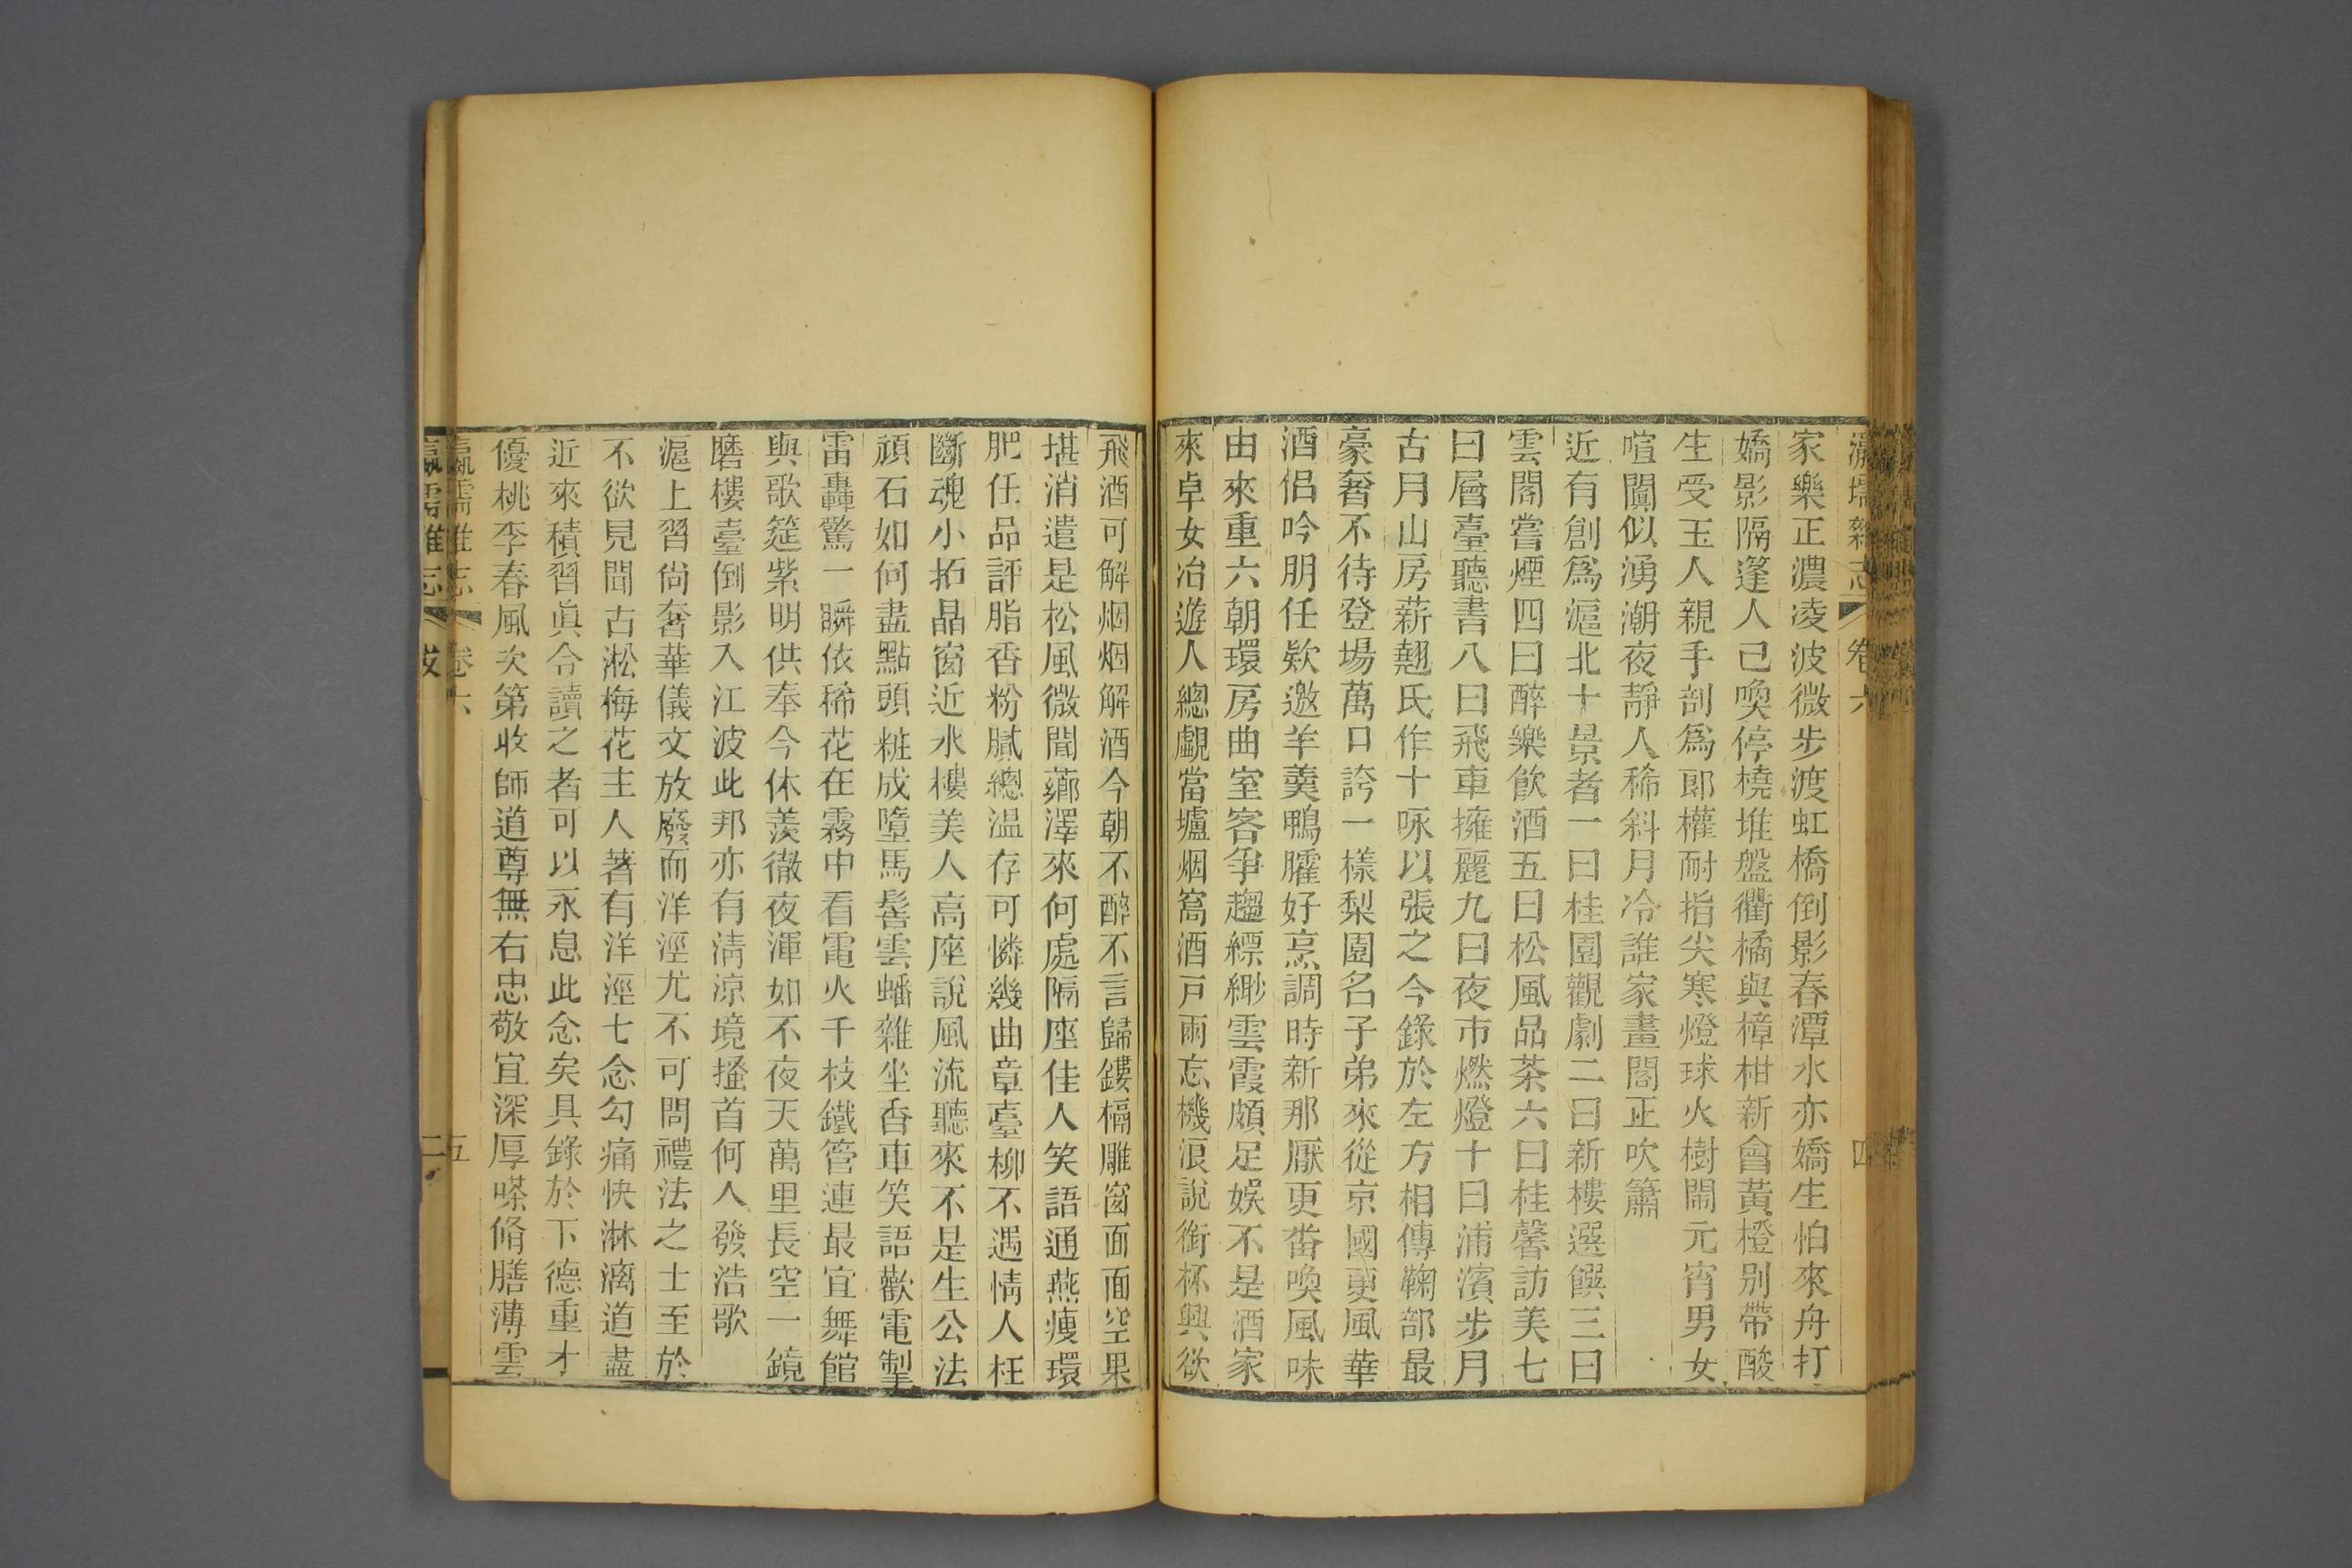 瀛壖雜志 卷六 四
家樂正濃凌波微步渡虹橋倒影春潭水亦嬌生怕來舟打
嬌影隔篷人已喚停橈堆盤衢橘與樟柑新會黃橙別帶酸
生受玉人親手剖爲郞權耐指尖寒燈球火樹鬧元宵男女
喧闐似湧潮夜靜人稀斜月冷誰家畫閣正吹簫
近有創爲滬北十景者一曰桂園觀劇二曰新樓選饌三曰
雲閣嘗煙四曰醉樂飮酒五曰松風品茶六曰桂馨訪美七
曰層臺聽書八曰飛車擁麗九曰夜市燃燈十曰浦濱步月
古月山房薪翹氏作十咏以張之今錄於左方相傳鞠部最
豪奢不待登場萬口誇一樣梨園名子弟來從京國更風華
酒侶吟朋任欵邀羊羹鴨臛好烹調時新那厭更番喚風味
由來重六朝環房曲室客爭趨縹緲雲霞頗足娛不是酒家
來卓女冶遊人總覷當壚烟窩酒戸兩忘機浪說銜杯興欲
飛酒可解烟烟解酒今朝不醉不言歸鏤槅雕窗面面空果
堪消遣是松風微聞薌澤來何處隔座佳人笑語通燕瘦環
肥任品評脂香粉膩總温存可憐幾曲章臺柳不遇情人枉
斷魂小拓晶窗近水樓美人高座說風流聽來不是生公法
頑石如何盡點頭粧成墮馬髻雲蟠雜坐香車笑語歡電掣
雷轟驚一瞬依稀花在霧中看電火千枝鐵管連最宜舞館
與歌筵紫明供奉今休羨徹夜渾如不夜天萬里長空一鏡
磨樓臺倒影入江波此邦亦有淸涼境搔首何人發浩歌
滬上習尙奢華儀文放廢而洋涇尤不可問禮法之士至於
不欲見聞古淞梅花主人著有洋涇七念勾痛快淋漓道盡
近來積習眞令讀之者可以永息此念矣具錄於下德重才
優桃李春風次第收師道尊無右忠敬宜深厚嗏脩膳薄雲
瀛壖雜志 卷六 五
瀛壖雜志 跋 二